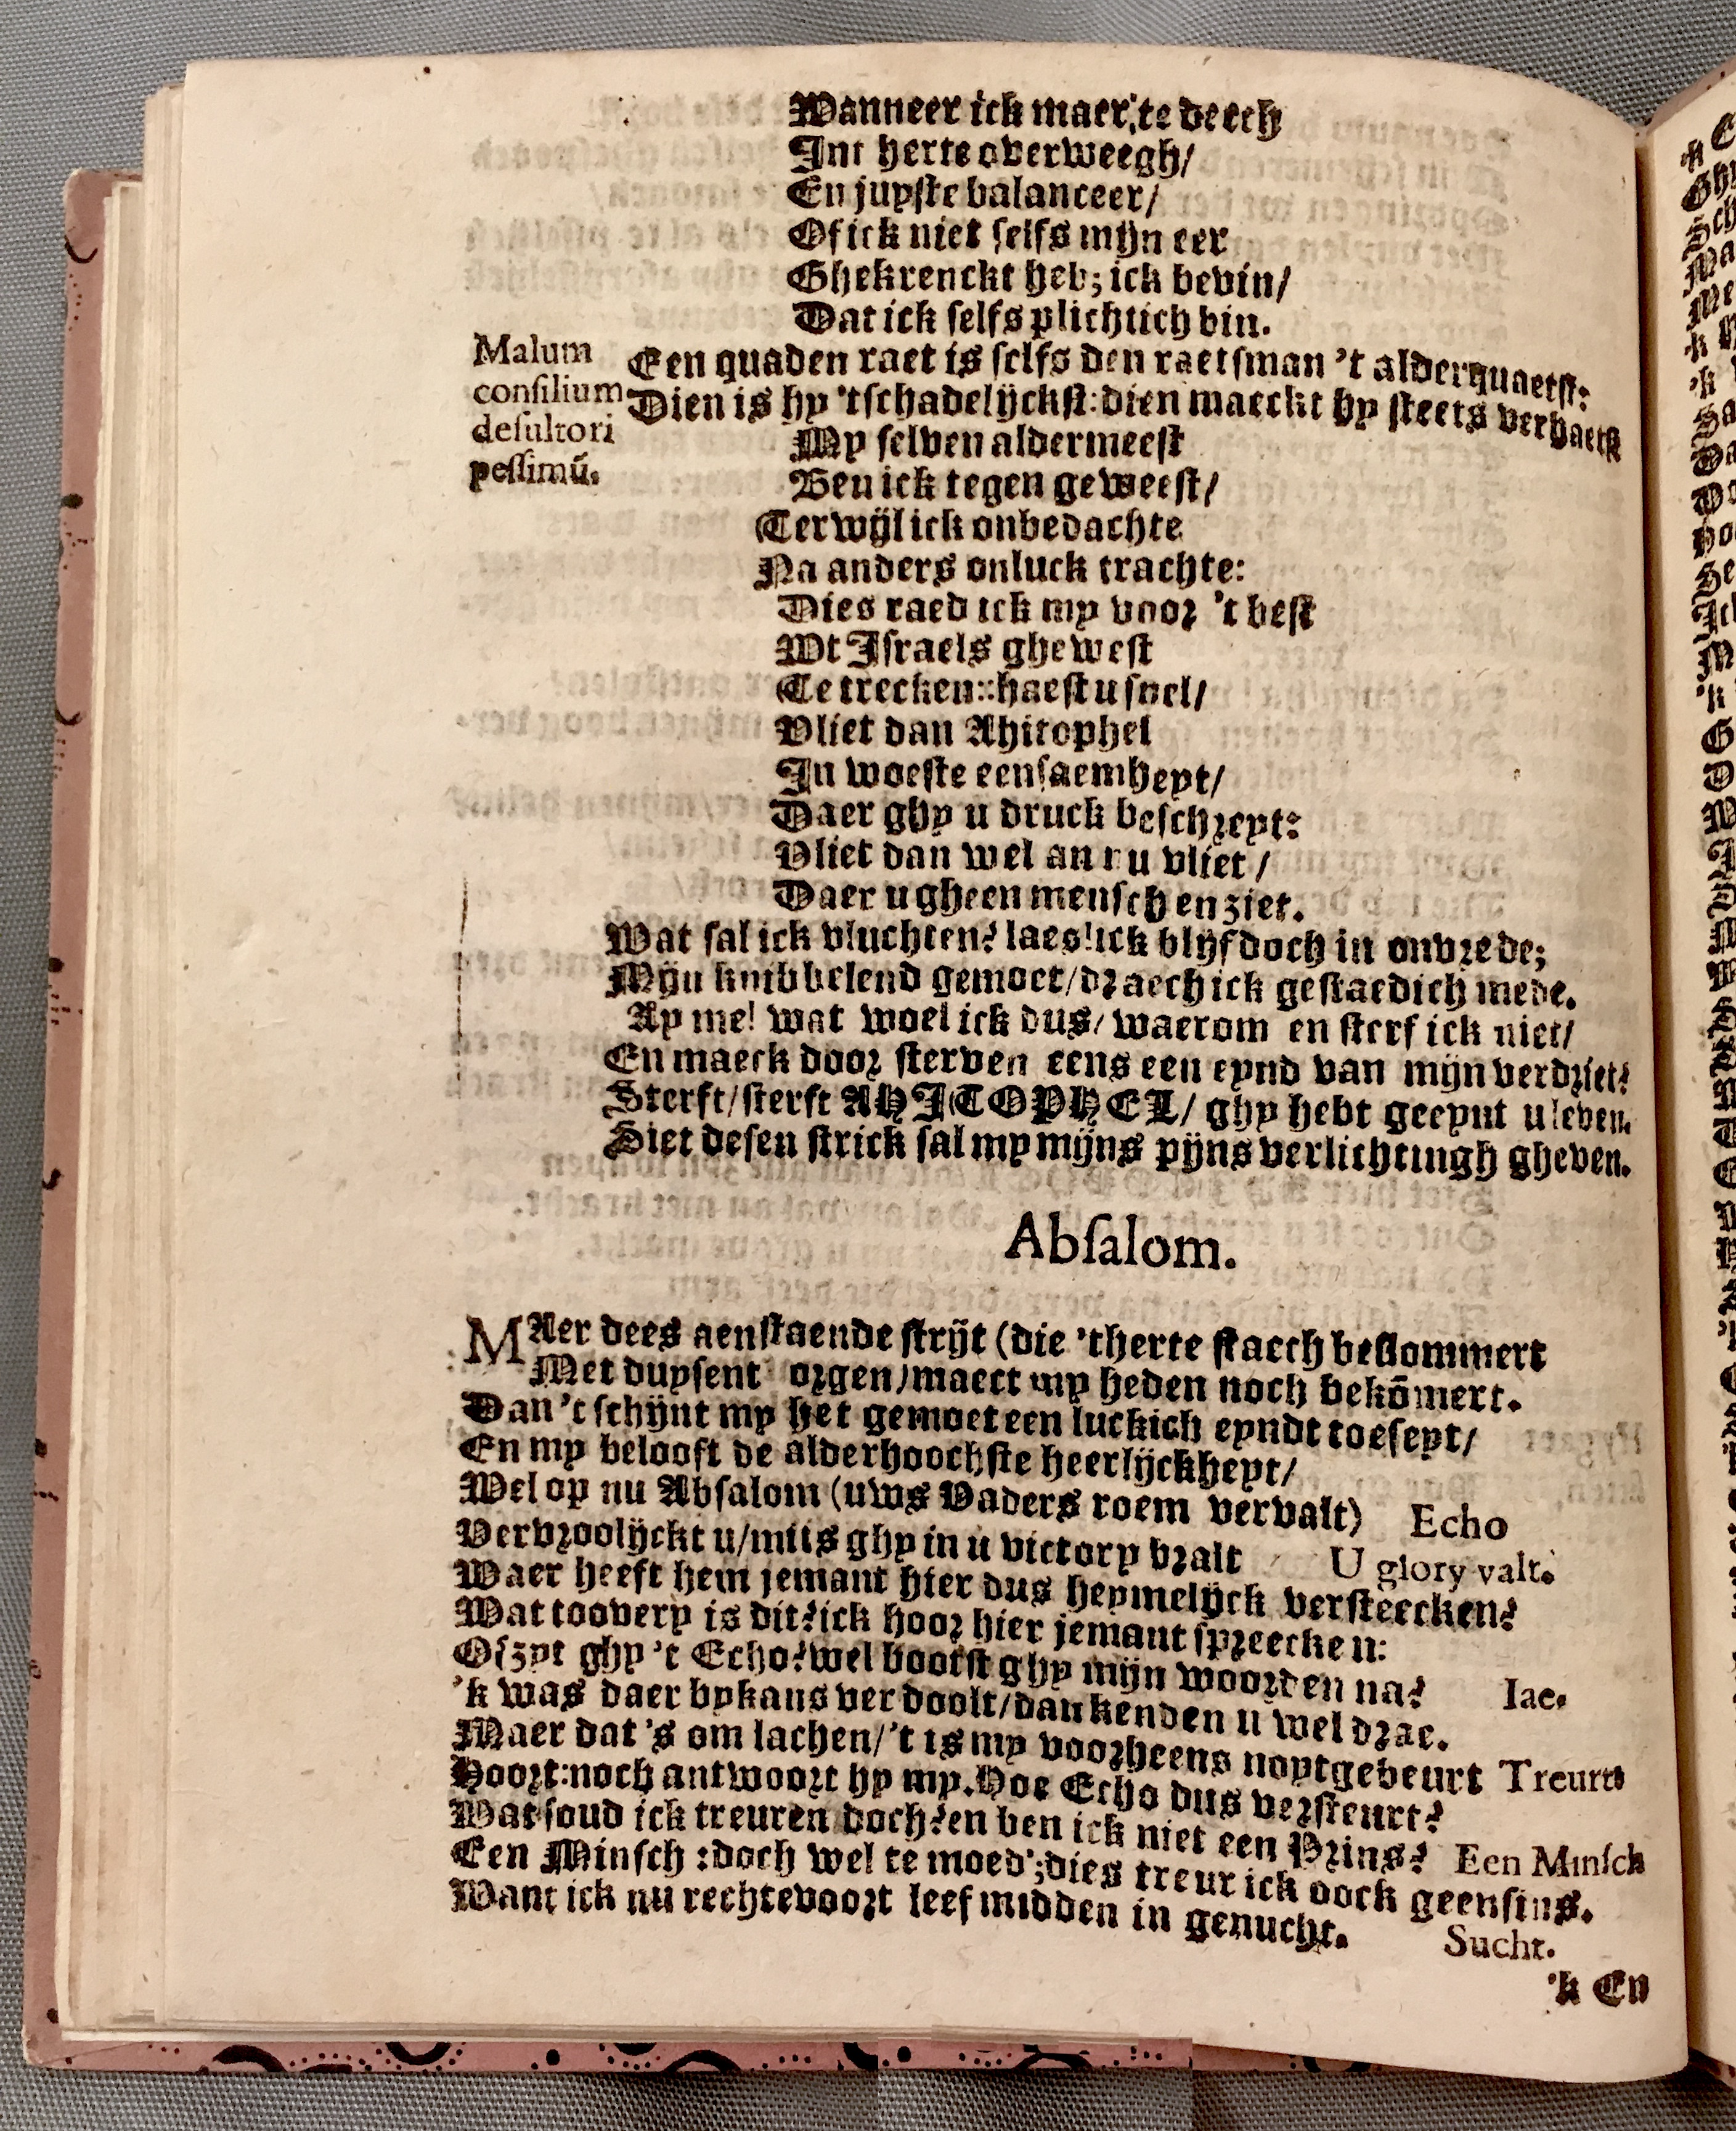 Wanneer ick maer, te deech
Int herte overweegh/
En juyste balanceer/
Of ick niet selfs mijn eer
Ghekrenckt heb; ick bevin/
Dat ick selfs plichtich bin.
Malum consilium desultori pessimū.
Een quaden raet is selfs den raetsman 't alderquaetst:
Dien is hy 'tschadelijckst: dien maeckt hy steets verbaetst
My selven aldermeest
Ben ick tegen geweest/
Terwijl ick onbedachte
Na anders onluck trachte:
Dies raed ick my voor 't best
Wt Israels ghewest
Te trecken:: haest u snel/
Vliet dan Ahitophel
In woeste eensaemheyt/
Daer ghy u druck beschreyt:
Vliet dan wel an nu vliet/
Daer u gheen mensch en ziet.
Wat sal ick vluchten? laes! ick blijf doch in onvrede;
Mijn knibbelend gemoet/ draech ick gestaedich mede.
Ay me! wat woel ick dus/ waerom en sterf ick niet/
En maeck door sterven eens een eynd van mijn verdriet?
Sterft/ sterft AHITOPHEL/ ghy hebt geeynt u leven.
Siet desen strick sal my mijns pijns verlichtingh gheven.
Absalom.
MAer dees aenstaende strijt (die 'therte staech beklommert
Met duysent orgen/ maect my heden noch bekōmert.
Dan 't schijnt my het gemoet een luckich eyndt toeseyt/
En my belooft de alderhoochste heerlijckheyt/
Wel op nu Absalom (uws Vaders roem vervalt) Echo
Vervroolijckt u/ mits ghy in u victory bralt U glory valt.
Waer heeft hem jemant hier dus heymelijck versteecken?
Wat toovery is dit? ick hoor hier jemant spreecken:
Of zyt ghy 't Echo? wel bootst ghy mijn woorden na? Iae.
'k was daer bykans verdoolt/ dan kenden u wel drae.
Maer dat 's om lachen/ 't is my voorheens noyt gebeurt Treurt
Hoort: noch antwoort hy my. Hoe Echo dus versteurt?
Wat soud ick treuren doch? en ben ick niet een Prins? Een Minsch
Een Minsch: doch wel te moed'; dies treur ick oock geensins.
Want ick nu rechtevoort leef midden in genucht. Sucht.
'k En